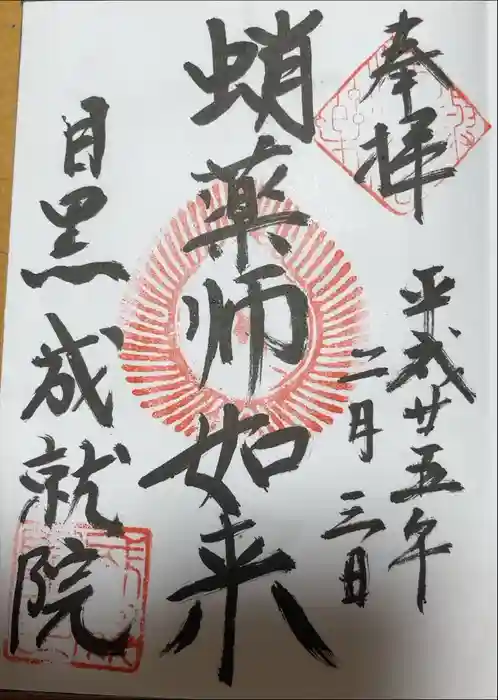 奉拝
平成廿五年
二月三日
蛸薬师如来
目黒成就院